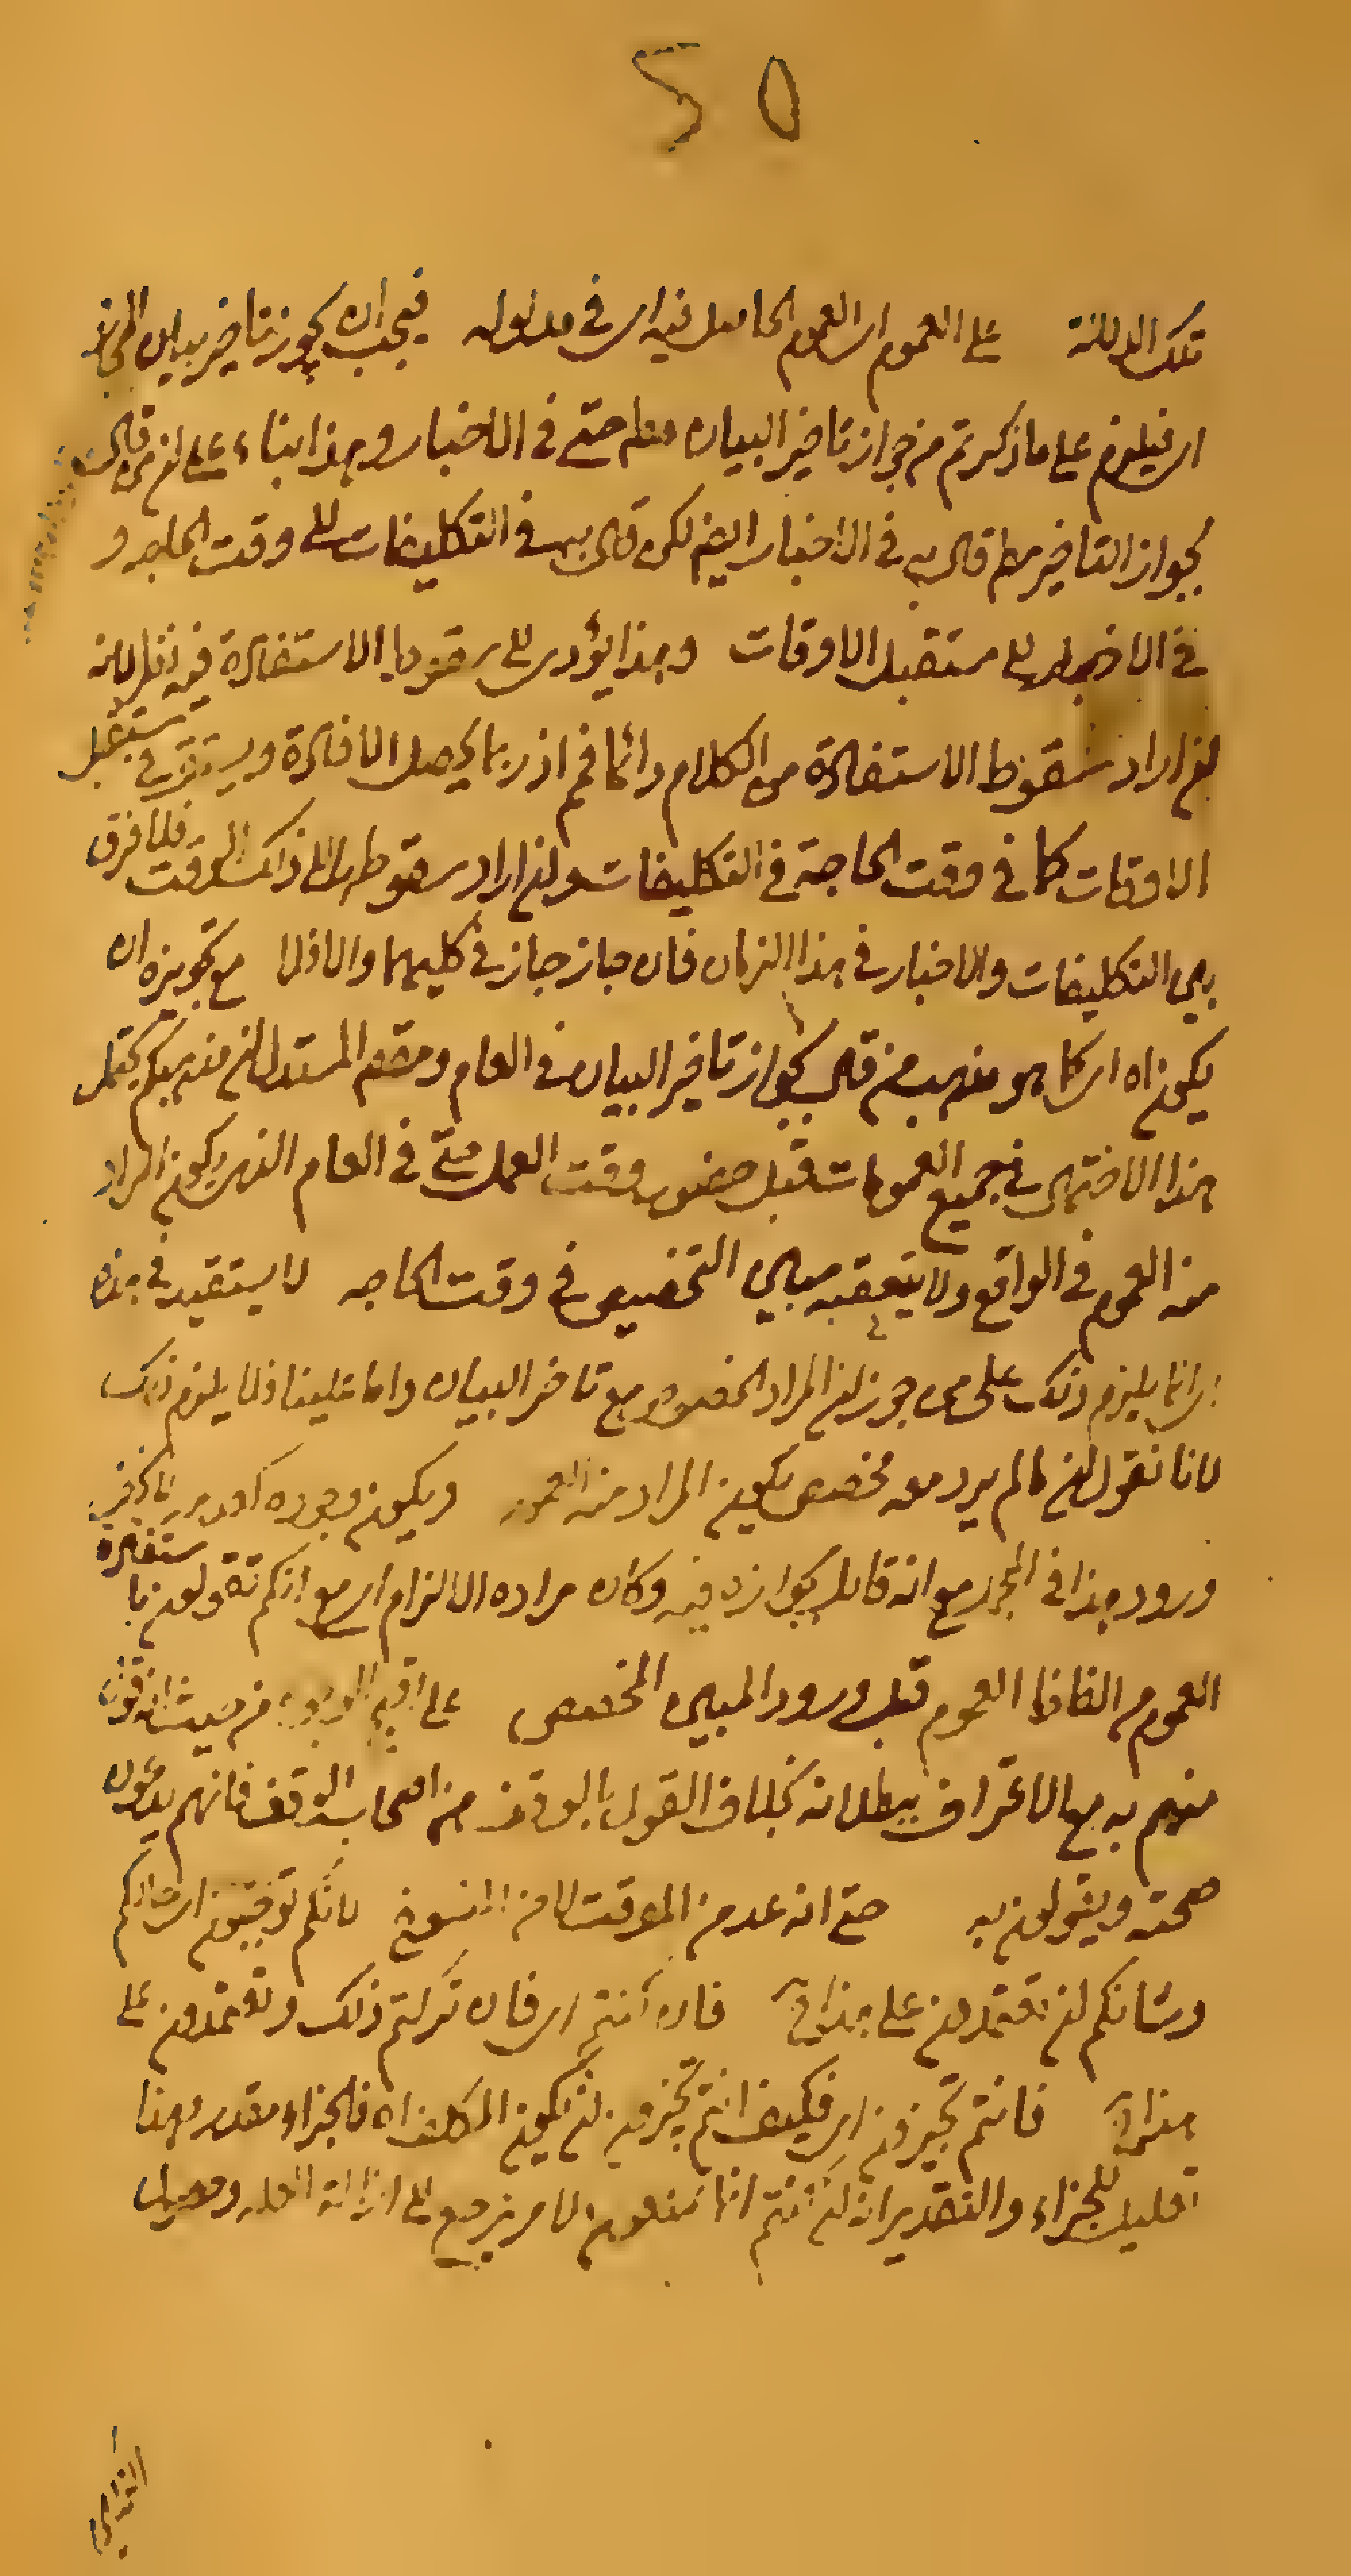 ٢٥
تلك الدلالة على العموم اى العموم الحاصل فيه اى في مدلوله فيجب ان يجوز تاخير بيان المجاز
اى فيلزم على ما ذكرتم من جواز تاخير البيان مطلم حتى فى الاخبار وهذا بناء على ان من قال
بجواز التاخير مطم قال به فى الاخبار ايضم لكن قال به فى التكليفات الى وقت الحاجه و
فى الاخبار الى مستقبل الاوقات وهذا يؤدى الى سقوط الاستفادة فيه نظر لانه
ان اراد سقوط الاستفادة من الكلام دائما فم اذ ربما يحصل الافادة ويستقر فى مستقبل
الاوقات كما فى وقت الحاجة فى التكليفات وان اراد سقوطها الى ذلك الوقت فلا فرق
بين التكليفات والاخبار فى هذا الزمان فان جاز جاز فى كليهما والا فلا مع تجويزه ان
يكون اه اى كما هو مذهب من قال بجواز تاخير البيان فى العام ومقصم المستدل ان مذهبكم يحتمل
هذا الاحتمال فى جميع العمومات قبل حضور وقت العمل حتى فى العام الذى يكون المراد
منه العموم فى الواقع ولا يتعقبه مبين التخصيص فى وقت الحاجه لا يستفيد فى هذه
اى انما يلزم ذلك على من جوز ان المراد الخصوص مع تاخر البيان واما علينا فلا يلزم ذلك
لانا نقول ان ما لم يرد معه مخصص يكون المراد منه العموم ويكون وجوده كعدمه
ورود هذا فى المجمل مع انه قايل بجوازه فيه وكان مراده الالزام اى مع انكم تقولون باستفادة
العموم من الفاظ العموم قبل ورود المبين المخصص على اقبح الوجوه من حيث انه قول
منهم به مع الاعتراف ببطلانه بخلاف القول بالوقف من اصحاب الوقف فانهم يدعون
صحته ويقولون به حتى انه عد من الموقت لا من المنسوخ لانكم توقتون اى شانكم
وشانكم ان تعتمدون على هذا آه فان انتم اى فان تركتم ذلك وتعتمدون على
هذا آه فانتم تجيزون اى فكيف انتم تجيزون ان يكون المكلف اه فالجزاء مقدر وهذا
تعليل للجزاء والتقدير انه ان انتم انما تمنعون لامر يرجع الى ازالة العله وحصول